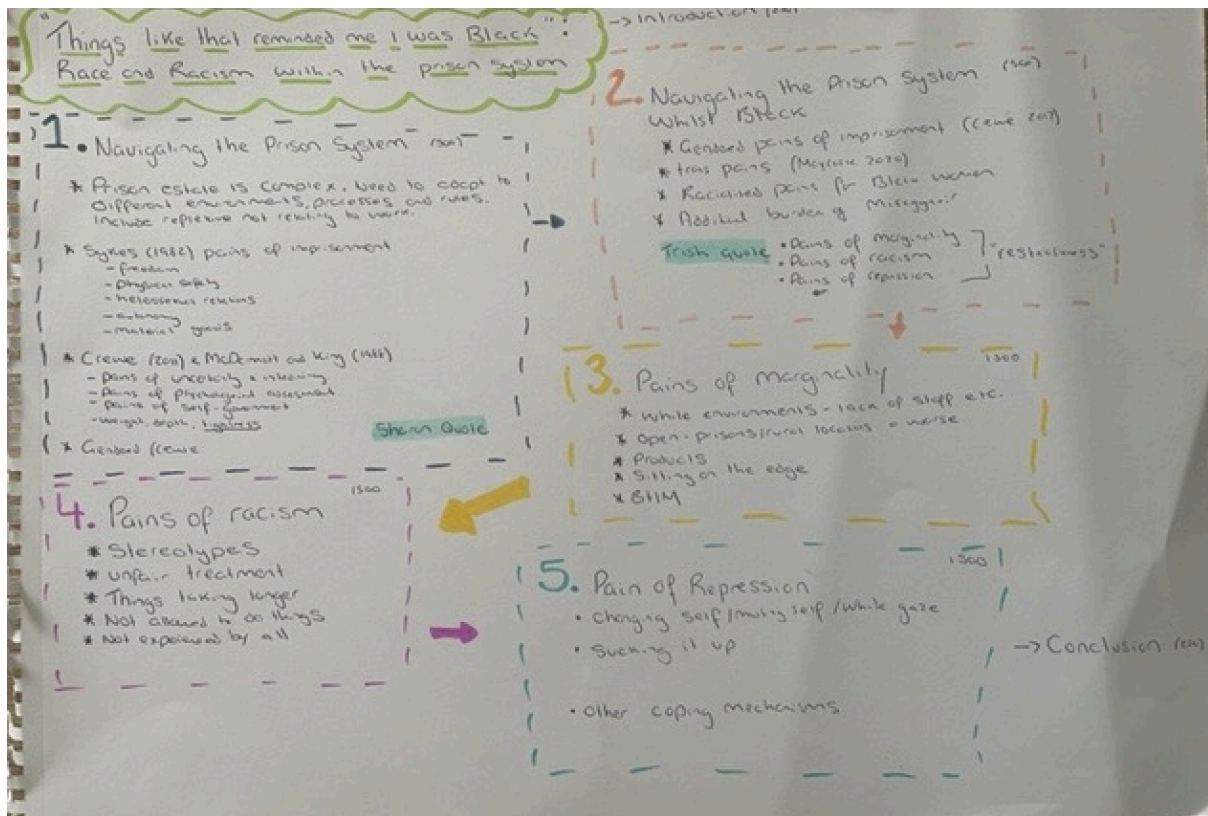 "Things like that reminded me I was Black":
Race and Racism within the prison system
-> Introduction
1. Navigating the Prison System (500)
* Prison estate is complex. Need to adapt to
different environments, processes and rules.
Include reflexive not relating to work.
* Sykes pains of imprisonment
- freedom
- physical safety
- heterosexual relations
- autonomy
- material goods
* Crewe (2011) & McDermott and King (1988)
- pains of uncertainty &
- Pains of psychological assessment
- pains of self-government
- weight, depth, tightness
Sharon Quote
* Gendered (Crewe
2. Navigating the Prison System (500)
Whilst Black
* Gendered pains of imprisonment (Crewe 2017)
* trans pains (Maycock 2020)
* Racialised pains for Black women
* burden of
Trish Quote
• Pains of marginality
• Pains of racism
• Pains of repression
3. Pains of Marginality
1500
* White environments - lack of staff etc.
* Open-prisons/rural locations = worse
* Products
* Sitting on the edge
* BHM
4. Pains of racism
1500
* Stereotypes
* unfair treatment
* Things taking longer
* Not allowed to do things
* Not experienced by all
5. Pain of Repression
1500
• Changing self/muting self/white gaze
• Sucking it up
• Other coping mechanisms
-> Conclusion